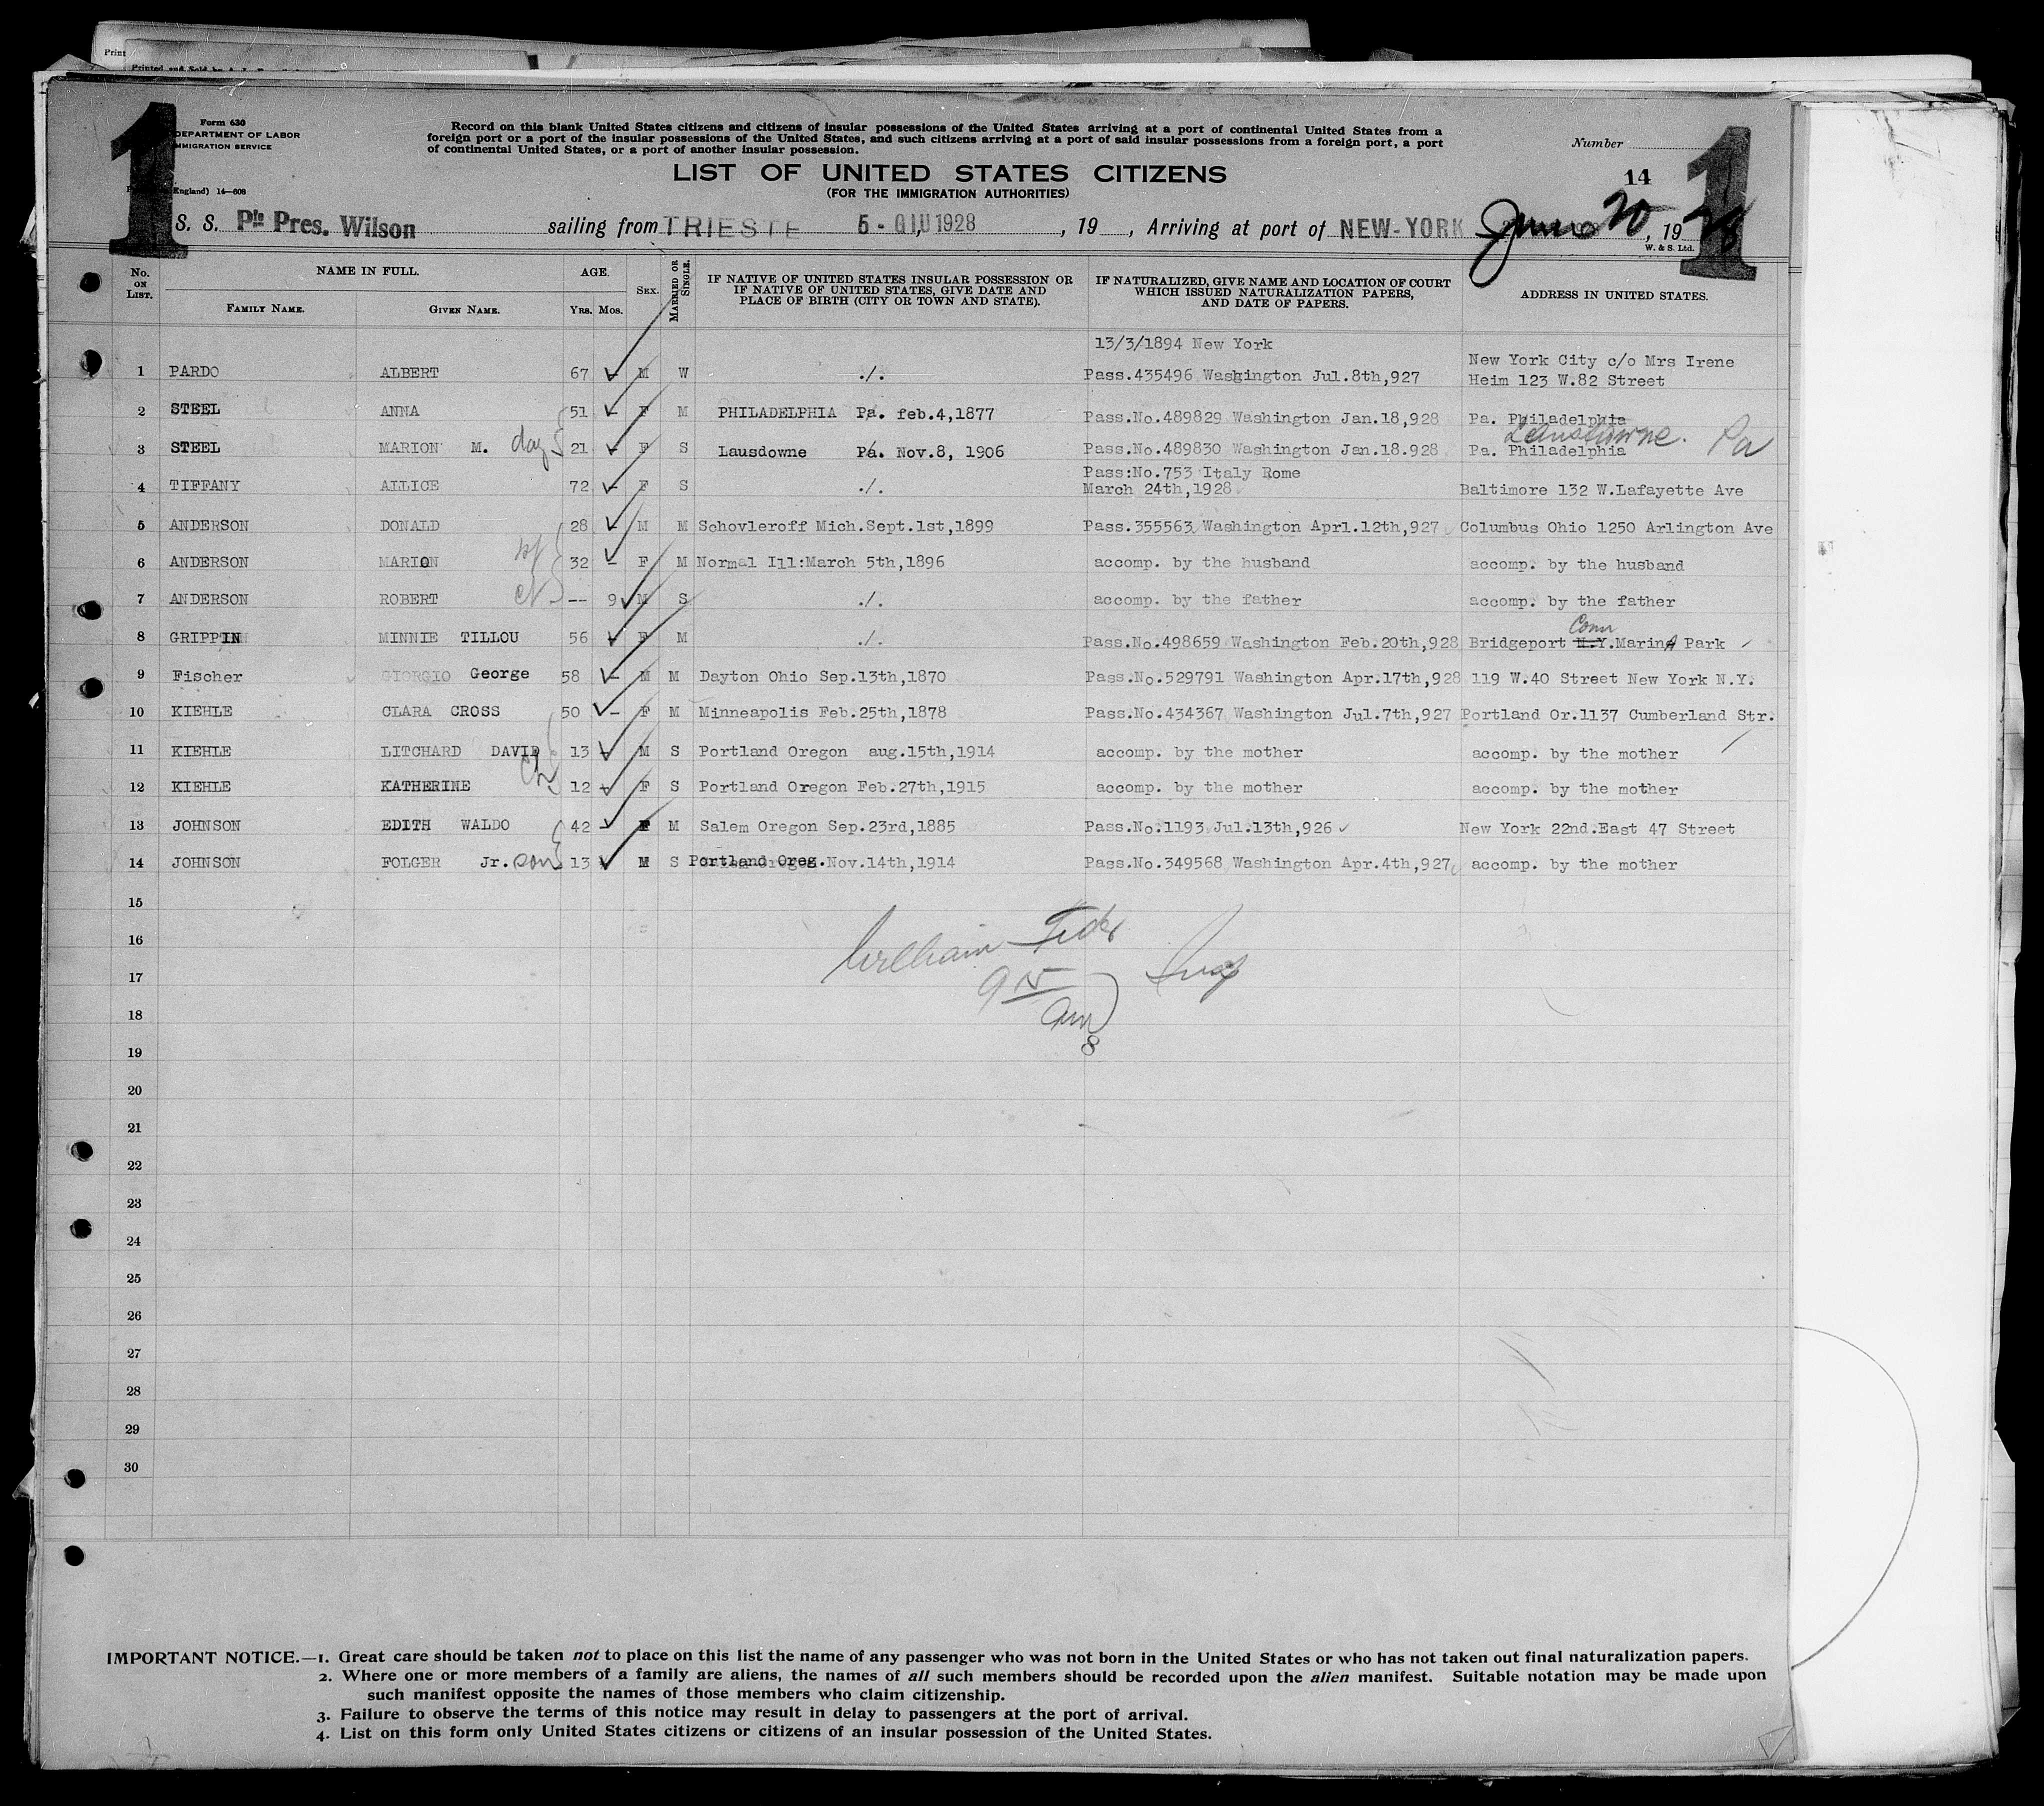 Print
Printed and Sold by
1
Form 630
DEPARTMENT OF LABOR
IMMIGRATION SERVICE
England) 14—608
Record on this blank United States citizens and citizens of insular possessions of the United States arriving at a port of continental United States from a
foreign port or a port of the insular possessions of the United States, and such citizens arriving at a port of said insular possessions from a foreign port, a port
of continental United States, or a port of another insular possession.
LIST OF UNITED STATES CITIZENS
(FOR THE IMMIGRATION AUTHORITIES)
Number
14
1
S. S. Pte Pres. Wilson sailing from TRIESTE 5 - GIU 1928, 19 , Arriving at port of NEW-YORK June 20, 1928
W. & S. Ltd.
No. ON LIST. NAME IN FULL. FAMILY NAME. GIVEN NAME. AGE. Yrs. Mos. SEX. MARRIED OR SINGLE. IF NATIVE OF UNITED STATES INSULAR POSSESSION OR IF NATIVE OF UNITED STATES, GIVE DATE AND PLACE OF BIRTH (CITY OR TOWN AND STATE). IF NATURALIZED, GIVE NAME AND LOCATION OF COURT WHICH ISSUED NATURALIZATION PAPERS, AND DATE OF PAPERS. ADDRESS IN UNITED STATES.
13/3/1894 New York New York City c/o Mrs Irene
1 PARDO ALBERT 67 - M W ./. Pass.435496 Washington Jul.8th,927 Heim 123 W.82 Street
2 STEEL ANNA 51 - F M PHILADELPHIA Pa. feb.4,1877 Pass.No.489829 Washington Jan.18,928 Pa. Philadelphia
Lansdowne. Pa
3 STEEL MARION M. dau 21 - F S Lausdowne Pa. Nov.8, 1906 Pass.No.489830 Washington Jan.18.928 Pa. Philadelphia
Pass:No.753 Italy Rome
4 TIFFANY ALLICE 72 - F S ./. March 24th,1928 Baltimore 132 W.Lafayette Ave
5 ANDERSON DONALD 28 - M M Schovleroff Mich.Sept.1st,1899 Pass.355563 Washington Aprl.12th,927 Columbus Ohio 1250 Arlington Ave
6 ANDERSON MARION wf 32 - F M Normal Ill:March 5th,1896 accomp. by the husband accomp. by the husband
7 ANDERSON ROBERT ch -- 9 M S ./. accomp. by the father accomp. by the father
Conn
8 GRIPPIN MINNIE TILLOU 56 - F M ./. Pass.No.498659 Washington Feb.20th,928 Bridgeport N.Y.MarinA Park
9 Fischer GIORGIO George 58 - M M Dayton Ohio Sep.13th,1870 Pass.No.529791 Washington Apr.17th,928 119 W.40 Street New York N.Y.
10 KIEHLE CLARA CROSS 50 - F M Minneapolis Feb.25th,1878 Pass.No.434367 Washington Jul.7th,927 Portland Or.1137 Cumberland Str.
11 KIEHLE LITCHARD DAVID 13 - M S Portland Oregon aug.15th,1914 accomp. by the mother accomp. by the mother
ch
12 KIEHLE KATHERINE 12 - F S Portland Oregon Feb.27th,1915 accomp. by the mother accomp. by the mother
13 JOHNSON EDITH WALDO 42 - F M Salem Oregon Sep.23rd,1885 Pass.No.1193 Jul.13th,926 New York 22nd.East 47 Street
14 JOHNSON FOLGER Jr. son 13 - M S Portland Oreg. Nov.14th,1914 Pass.No.349568 Washington Apr.4th,927 accomp. by the mother
15
16
William
17
9 15 Insp
18
am
19
8
20
21
22
23
24
25
26
27
28
29
30
IMPORTANT NOTICE.—1. Great care should be taken not to place on this list the name of any passenger who was not born in the United States or who has not taken out final naturalization papers.
2. Where one or more members of a family are aliens, the names of all such members should be recorded upon the alien manifest. Suitable notation may be made upon
such manifest opposite the names of those members who claim citizenship.
3. Failure to observe the terms of this notice may result in delay to passengers at the port of arrival.
4. List on this form only United States citizens or citizens of an insular possession of the United States.